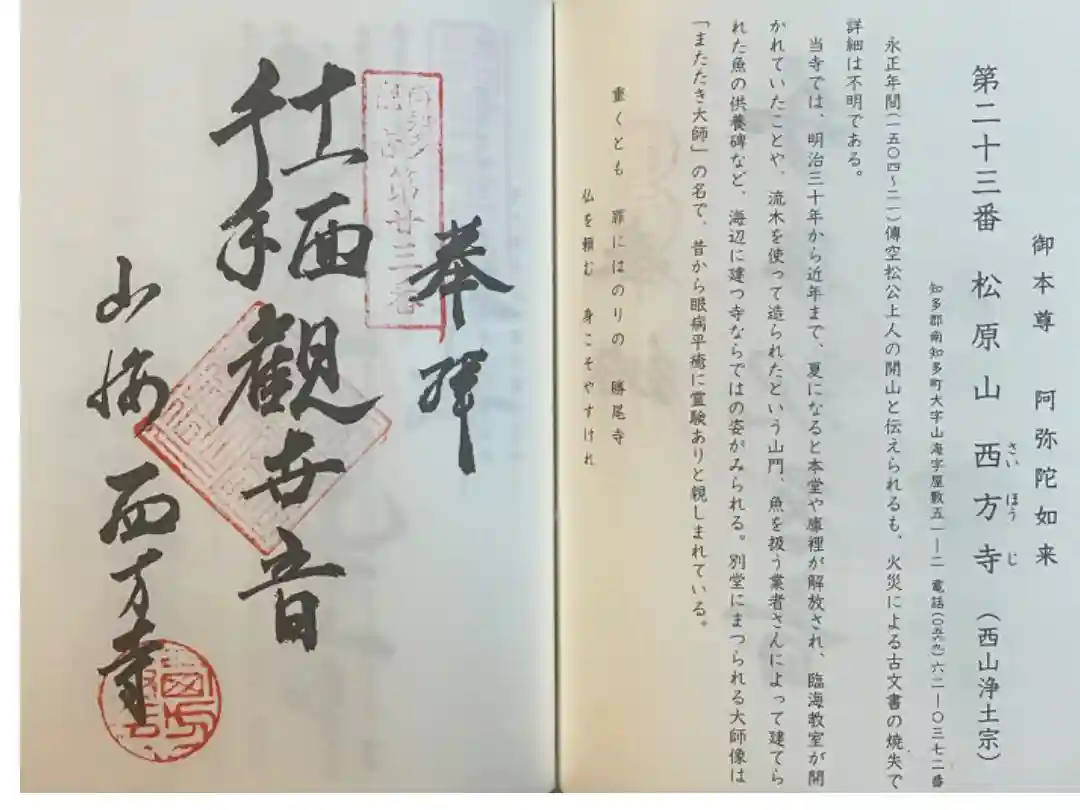 御本尊　阿弥陀如来
第二十三番　松原山　西方寺（西山浄土宗）
さい　ほう　じ
知多郡南知多町大字山海字屋敷五一―二　電話（〇五六九）六二―〇三七二番
永正年間（一五〇四～二一）傳空松公上人の開山と伝えられるも、火災による古文書の焼失で
詳細は不明である。
当寺では、明治三十年から近年まで、夏になると本堂や庫裡が解放され、臨海教室が開
かれていたことや、流木を使って造られたという山門、魚を扱う業者さんによって建てら
れた魚の供養碑など、海辺に建つ寺ならではの姿がみられる。別堂にまつられる大師像は
「またたき大師」の名で、昔から眼病平癒に霊験ありと親しまれている。
重くとも　罪にはのりの　勝尾寺
仏を頼む　身こそやすけれ
奉拝
第廿三番
十一面
千手
観世音
山海　西方寺